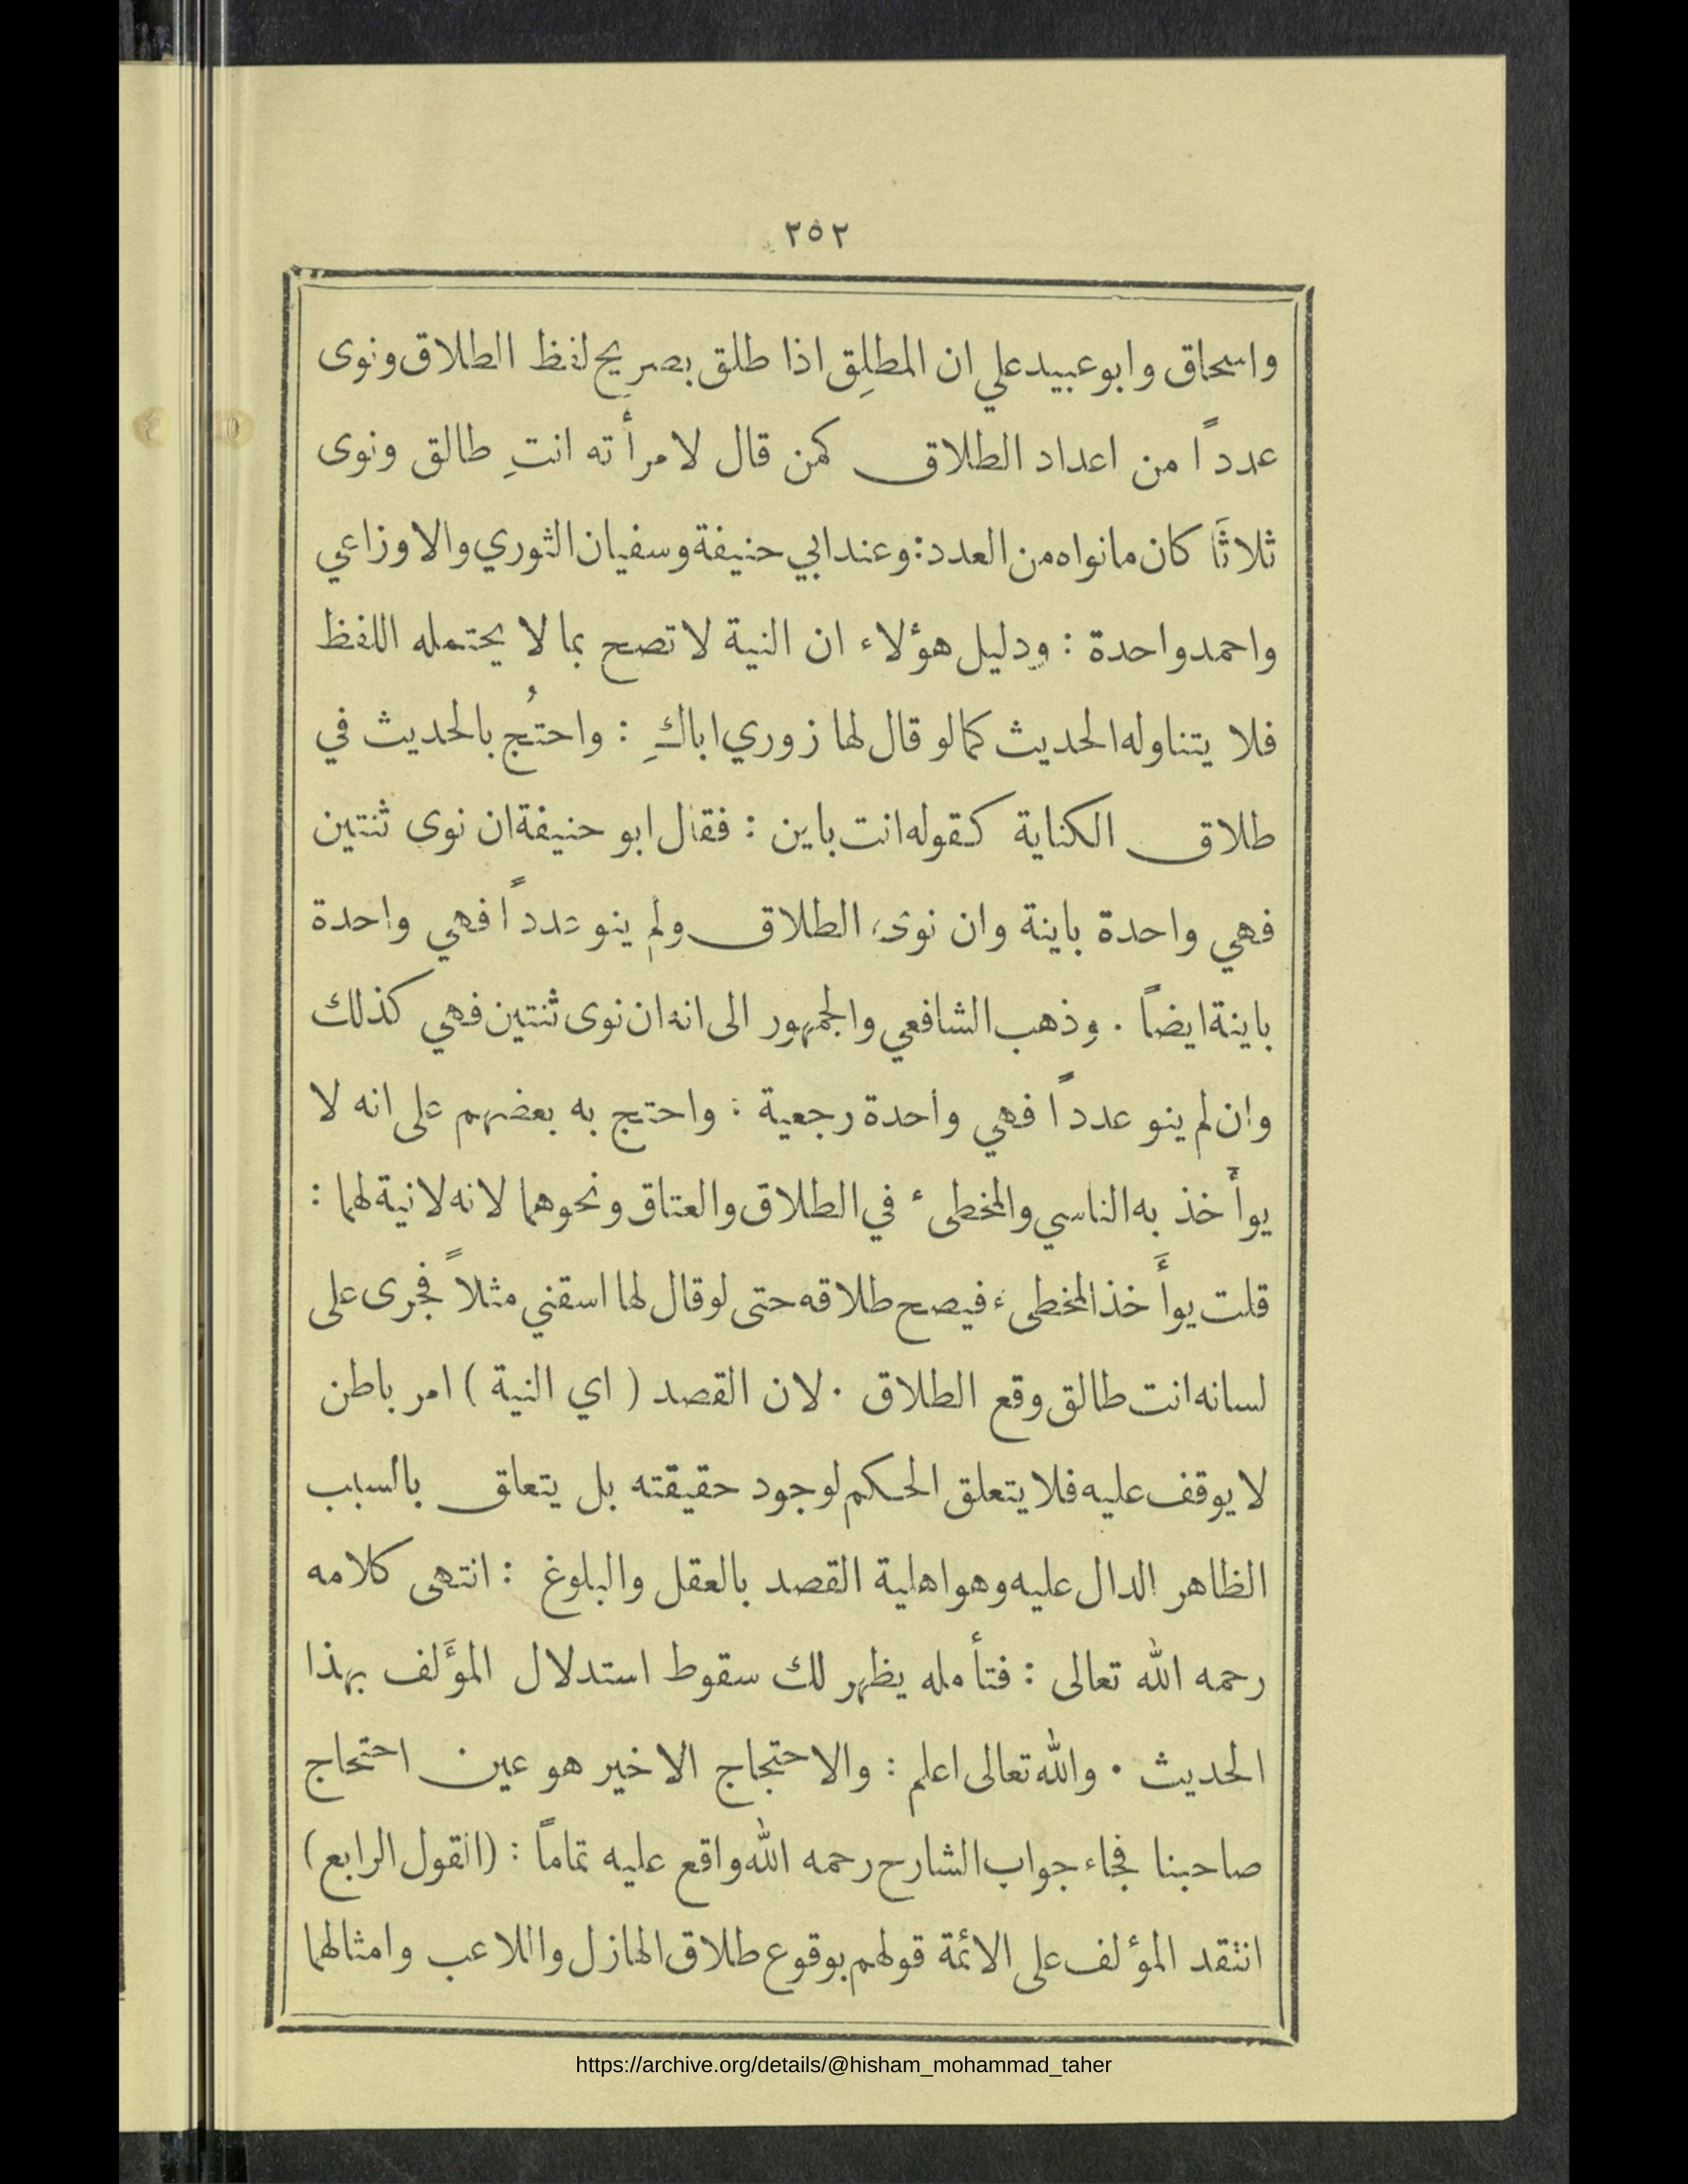 ٢٥٢
واسحاق وابو عبيد علي ان المطلِق اذا طلق بصريح لفظ الطلاق ونوى
عدداً من اعداد الطلاق كمن قال لامرأته انتِ طالق ونوى
ثلاثَا كان مانواه من العدد : وعند ابي حنيفة وسفيان الثوري والاوزاعي
واحمد واحدة : ودليل هؤلاء ان النية لا تصح بما لا يحتمله اللفظ
فلا يتناوله الحديث كمالو قال لها زوري اباكِ : واحتُج بالحديث في
طلاق الكناية كقوله انت باين : فقال ابو حنيفة ان نوى ثنتين
فهي واحدة باينة وان نوى الطلاق ولم ينو عدداً فهي واحدة
باينة ايضاً . وذهب الشافعي والجمهور الى انه ان نوى ثنتين فهي كذلك
وان لم ينو عدداً فهي واحدة رجعية : واحتج به بعضهم على انه لا
يوأخذ به الناسي والمخطىء في الطلاق والعتاق ونحوهما لانه لانية لهما :
قلت يوأَخذ المخطىء فيصح طلاقه حتى لو قال لها اسقني مثلاً فجرى على
لسانه انت طالق وقع الطلاق . لان القصد ( اي النية ) امر باطن
لا يوقف عليه فلا يتعلق الحكم لوجود حقيقته بل يتعلق بالسبب
الظاهر الدال عليه وهو اهلية القصد بالعقل والبلوغ : انتهى كلامه
رحمه الله تعالى : فتأمله يظهر لك سقوط استدلال المؤَلف بهذا
الحديث . والله تعالى اعلم : والاحتجاج الاخير هو عين احتجاج
صاحبنا فجاء جواب الشارح رحمه الله واقع عليه تماماً : (القول الرابع)
انتقد المؤلف على الائمة قولهم بوقوع طلاق الهازل واللاعب وامثالهما
https://archive.org/details/@hisham_mohammad_taher